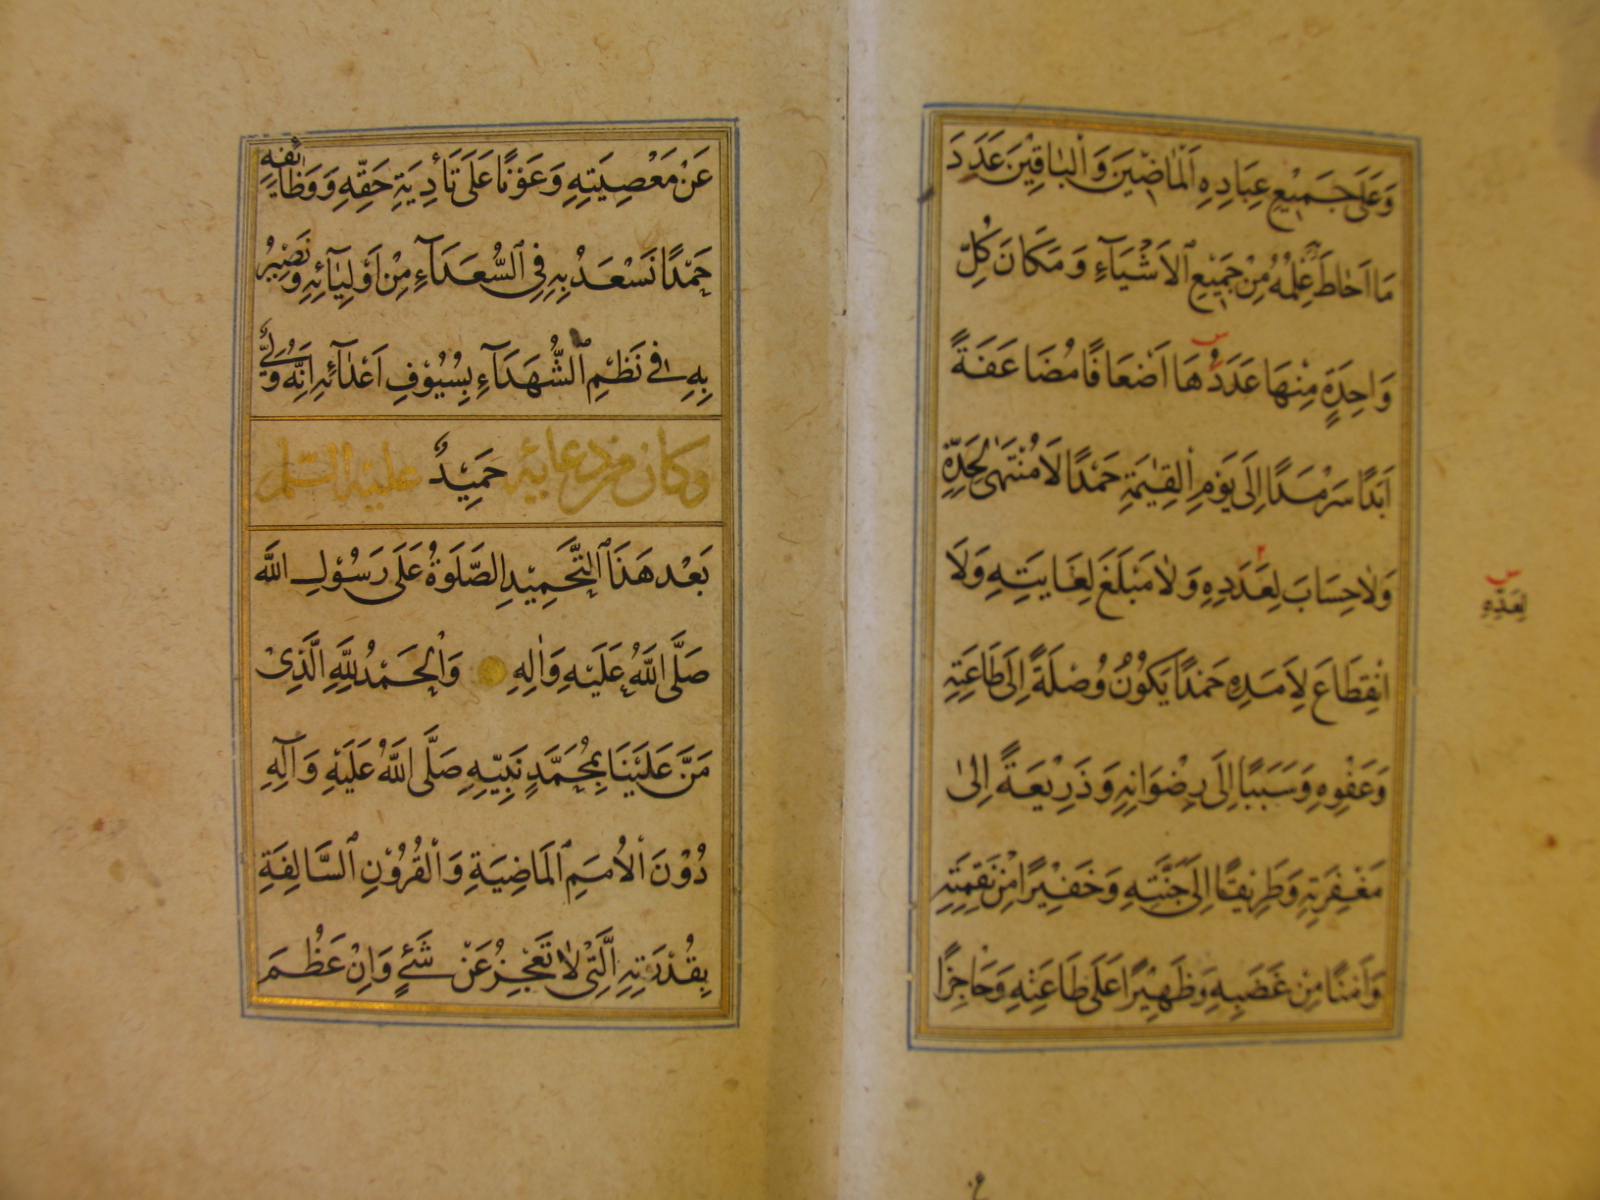 وَعَلَى جَمِيْعِ عِبَادِهِ اْلمَاضِيْنَ وَاْلبَاقِيْنَ عَدَدَ
مَا اَحَاطَ عِلْمُهُ مِنْ جَمِيْعِ الْاَشْيَآءِ وَمَكَانَ كُلِّ
وَاحِدَةٍ مِنْهَا عَدَدُهَا اَضْعَافًا مُضَاعَفَةً
اَبَدًا سَرْمَدًا اِلَى يَوْمِ الْقِيٰمَةِ حَمْدًا لَا مُنْتَهٰى لِحَدِّهِ
وَلَا حِسَابَ لِعَدَدِهِ وَلَا مَبْلَغَ لِغَايَتِهِ وَلَا
لِعَدِّهِ
انْقِطَاعَ لِاَمَدِهِ حَمْدًا يَكُوْنُ وُصْلَةً اِلَى طَاعَتِهِ
وَعَفْوِهِ وَسَبَبًا اِلَى رِضْوَانِهِ وَذَرِيْعَةً اِلىٰ
مَغْفِرَتِهِ وَطَرِيْقًا اِلَى جَنَّتِهِ وَخَفِيْرًا مِنْ نَقِمَتِهِ
وَاَمْنًا مِنْ غَضَبِهِ وَظَهِيْرًا عَلَى طَاعَتِهِ وَحَاجِزًا
عَنْ مَعْصِيَتِهِ وَعَوْنًا عَلَى تَأْدِيَةِ حَقِّهِ وَوَظَائِفِهِ
حَمْدًا نَسْعَدُ بِهِ فِي السُّعَدَآءِ مِنْ اَوْلِيَآئِهِ وَنَصِيْرُ
بِهِ فِي نَظْمِ الشُّهَدَآءِ بِسُيُوْفِ اَعْدَآئِهِ اِنَّهُ وَلِيٌّ
حَمِيْدٌ
وكان من دعائه عليه السلم
بَعْدَ هَذَا التَّحْمِيْدِ الصَّلَوةُ عَلَى رَسُوْلِ اللّٰهِ
صَلَّى اللّٰهُ عَلَيْهِ وَاٰلِهِ وَالْحَمْدُ لِلّٰهِ الَّذِىْ
مَنَّ عَلَيْنَا بِمُحَمَّدٍ نَبِيِّهِ صَلَّى اللّٰهُ عَلَيْهِ وَآلِهِ
دُوْنَ الْاُمَمِ الْمَاضِيَةِ وَالْقُرُوْنِ السَّالِفَةِ
بِقُدْرَتِهِ الَّتِيْ لَا تَعْجِزُ عَنْ شَىْءٍ وَاِنْ عَظُمَ